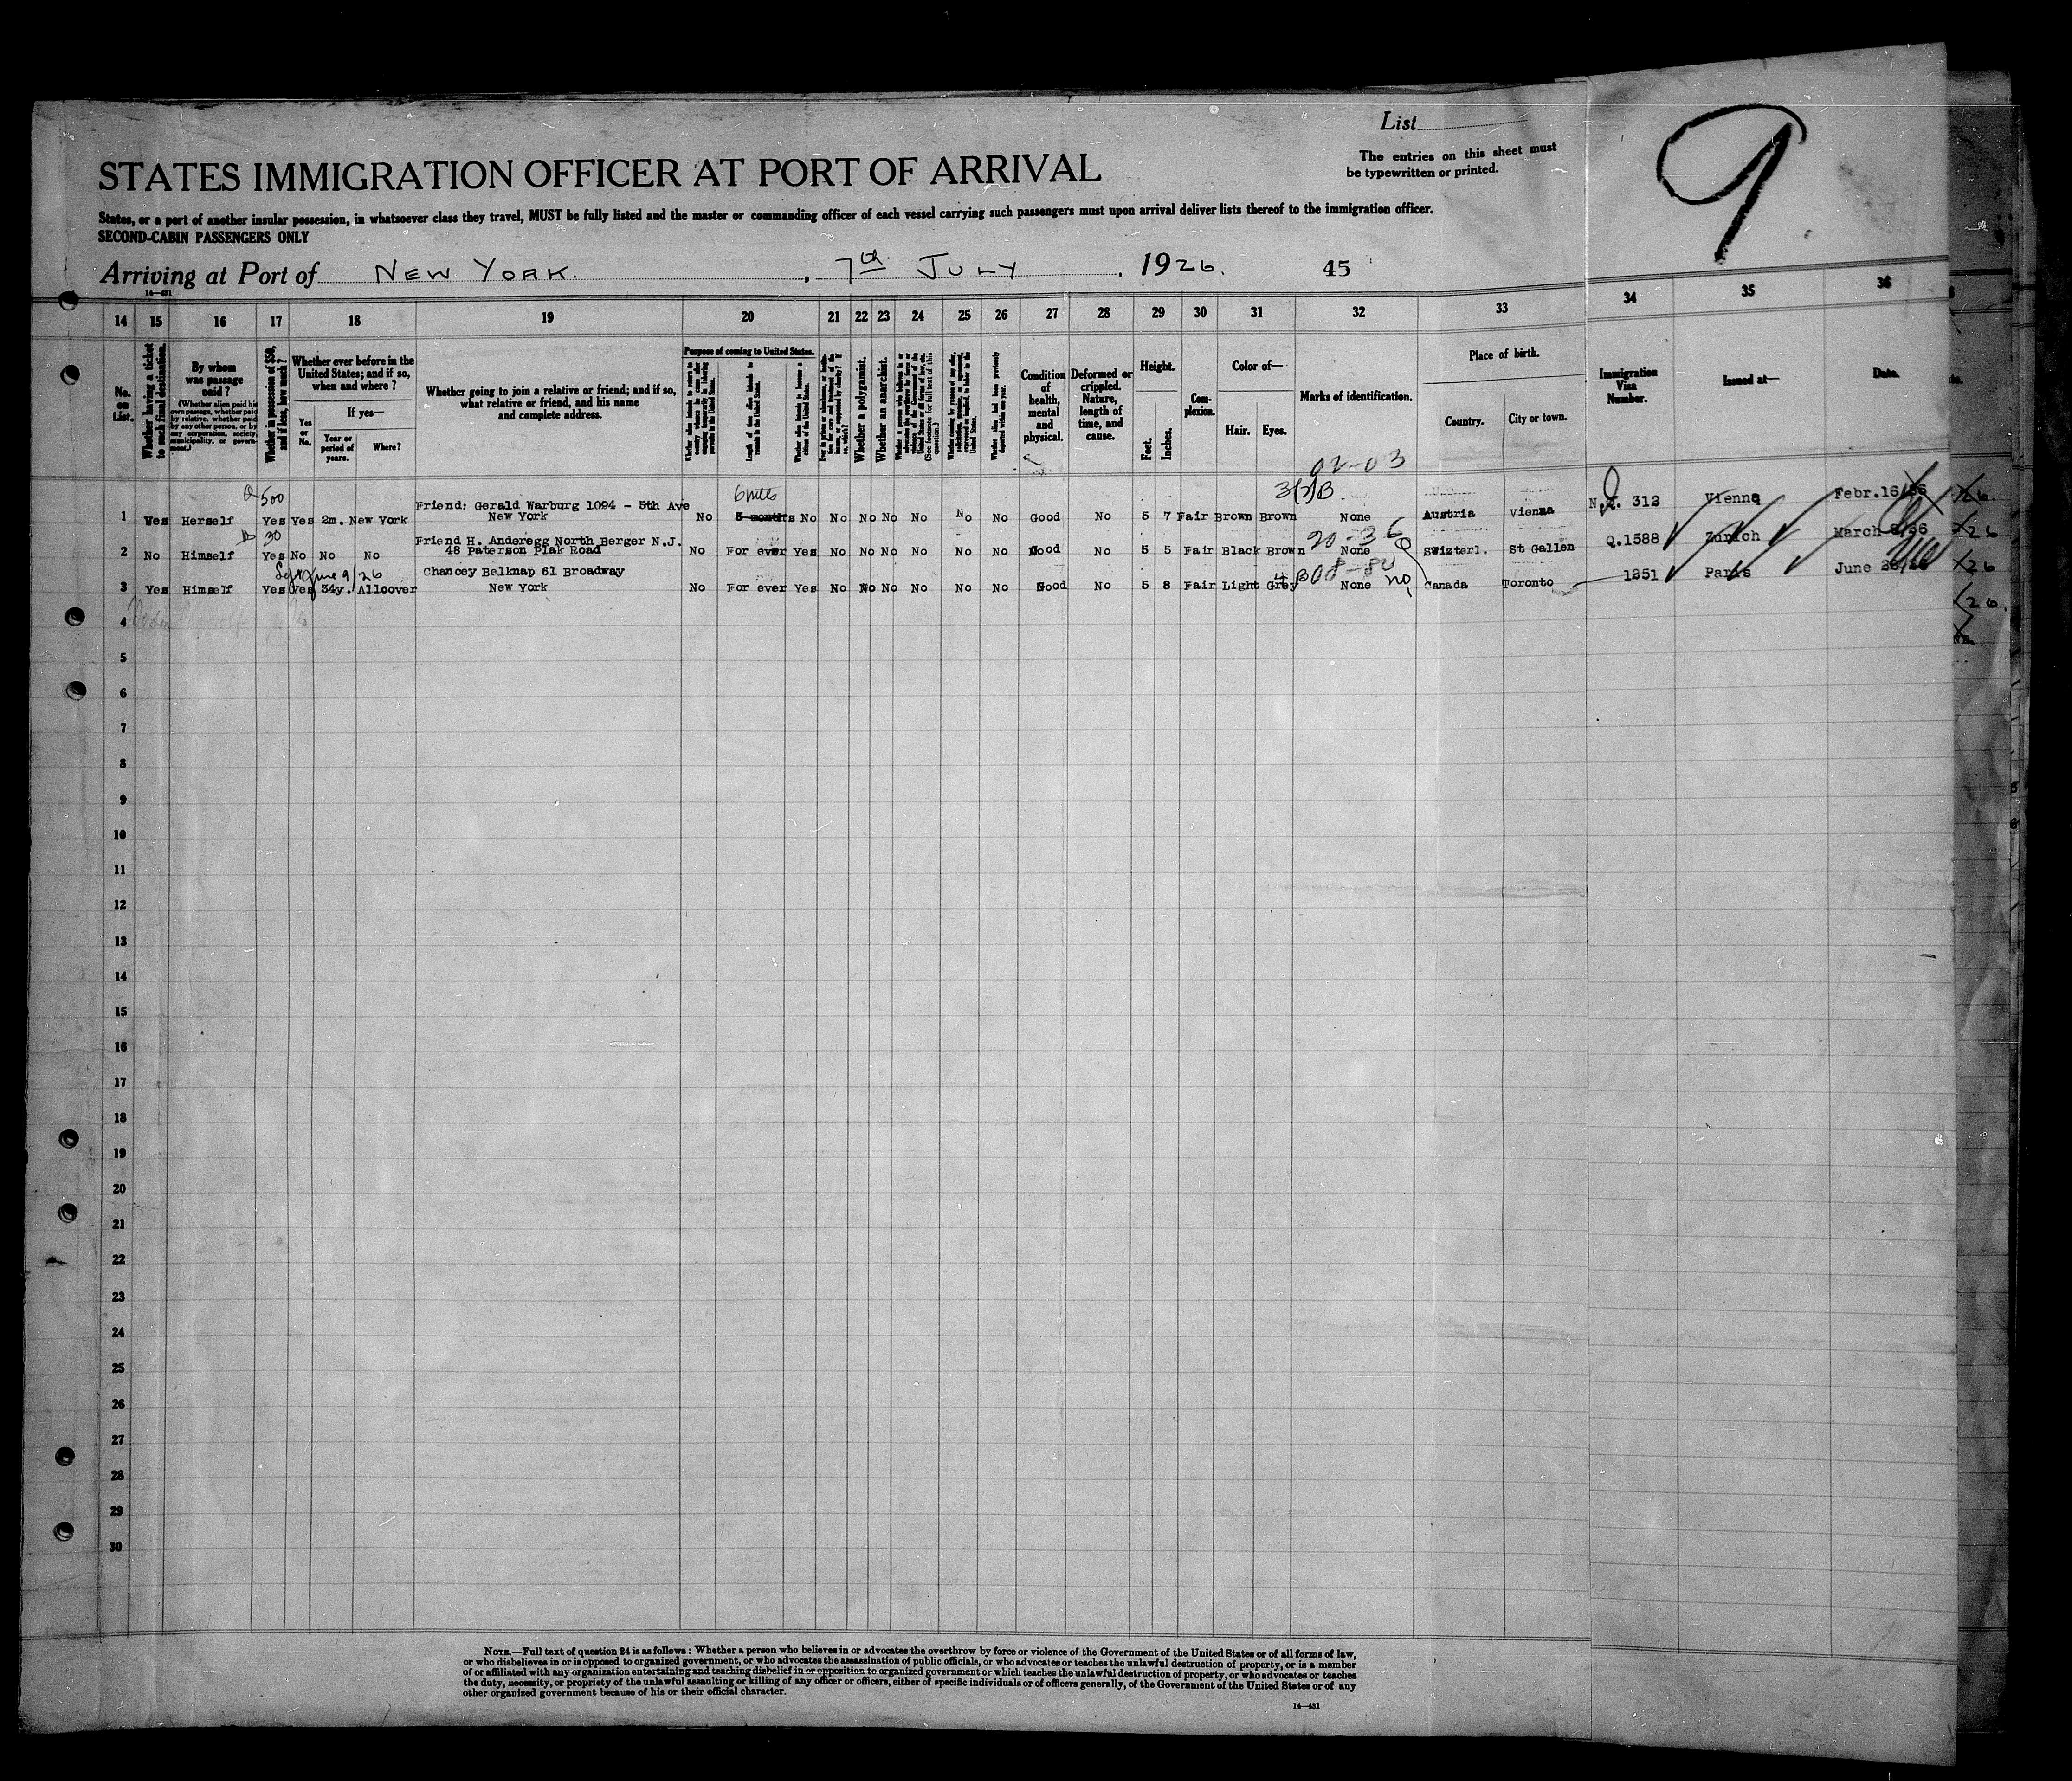 List
The entries on this sheet must
be typewritten or printed.
9
STATES IMMIGRATION OFFICER AT PORT OF ARRIVAL
States, or a port of another insular possession, in whatsoever class they travel, MUST be fully listed and the master or commanding officer of each vessel carrying such passengers must upon arrival deliver lists thereof to the immigration officer.
SECOND-CABIN PASSENGERS ONLY
Arriving at Port of NEW YORK. , 7th JULY , 1926. 45
14—431
14 15 16 17 18 19 20 21 22 23 24 25 26 27 28 29 30 31 32 33 34 35 36
No. on List.
Whether having a ticket to such final destination.
By whom was passage paid?
(Whether alien paid his own passage, whether paid by relative, whether paid by any other person, or by any corporation, society, municipality, or government.)
Whether in possession of $50, and if less, how much?
Whether ever before in the United States; and if so, when and where?
Yes or No.
If yes—
Year or period of years.
Where?
Whether going to join a relative or friend; and if so, what relative or friend, and his name and complete address.
Purpose of coming to United States.
Length of time alien intends to remain in the United States.
Whether alien intends to become a citizen of the United States.
Whether a polygamist.
Whether an anarchist.
(See footnote for full text of this question.)
Whether alien had been previously deported within one year.
Condition of health, mental and physical.
Deformed or crippled. Nature, length of time, and cause.
Height.
Feet. Inches.
Complexion.
Color of—
Hair. Eyes.
Marks of identification.
Place of birth.
Country. City or town.
Immigration Visa Number.
Issued at—
Date.
02-03
500 6 mths
1 Yes Herself Yes Yes 2m. New York Friend: Gerald Warburg 1094 - 5th Ave New York No 3 months No No No No No No No Good No 5 7 Fair Brown Brown None Austria Vienna 312 Vienna Febr.16/26
30 20-36
2 No Himself Yes No No No Friend H. Anderegg North Berger N.J. 48 Paterson Plak Road No For ever Yes No No No No No No Good No 5 5 Fair Black Brown None Swizterl. St Gallen Q.1588 Zurich March
June 9/26
3 Yes Himself Yes Yes 34y. Alloover Chancey Belknap 61 Broadway New York No For ever Yes No No No No No No Good No 5 8 Fair Light Grey None no Canada Toronto 1251 Paris June
4
5
6
7
8
9
10
11
12
13
14
15
16
17
18
19
20
21
22
23
24
25
26
27
28
29
30
NOTE.—Full text of question 24 is as follows: Whether a person who believes in or advocates the overthrow by force or violence of the Government of the United States or of all forms of law,
or who disbelieves in or is opposed to organized government, or who advocates the assassination of public officials, or who advocates or teaches the unlawful destruction of property, or is a member
of or affiliated with any organization entertaining and teaching disbelief in or opposition to organized government or which teaches the unlawful destruction of property, or who advocates or teaches
the duty, necessity, or propriety of the unlawful assaulting or killing of any officer or officers, either of specific individuals or of officers generally, of the Government of the United States or of any
other organized government because of his or their official character.
14—431